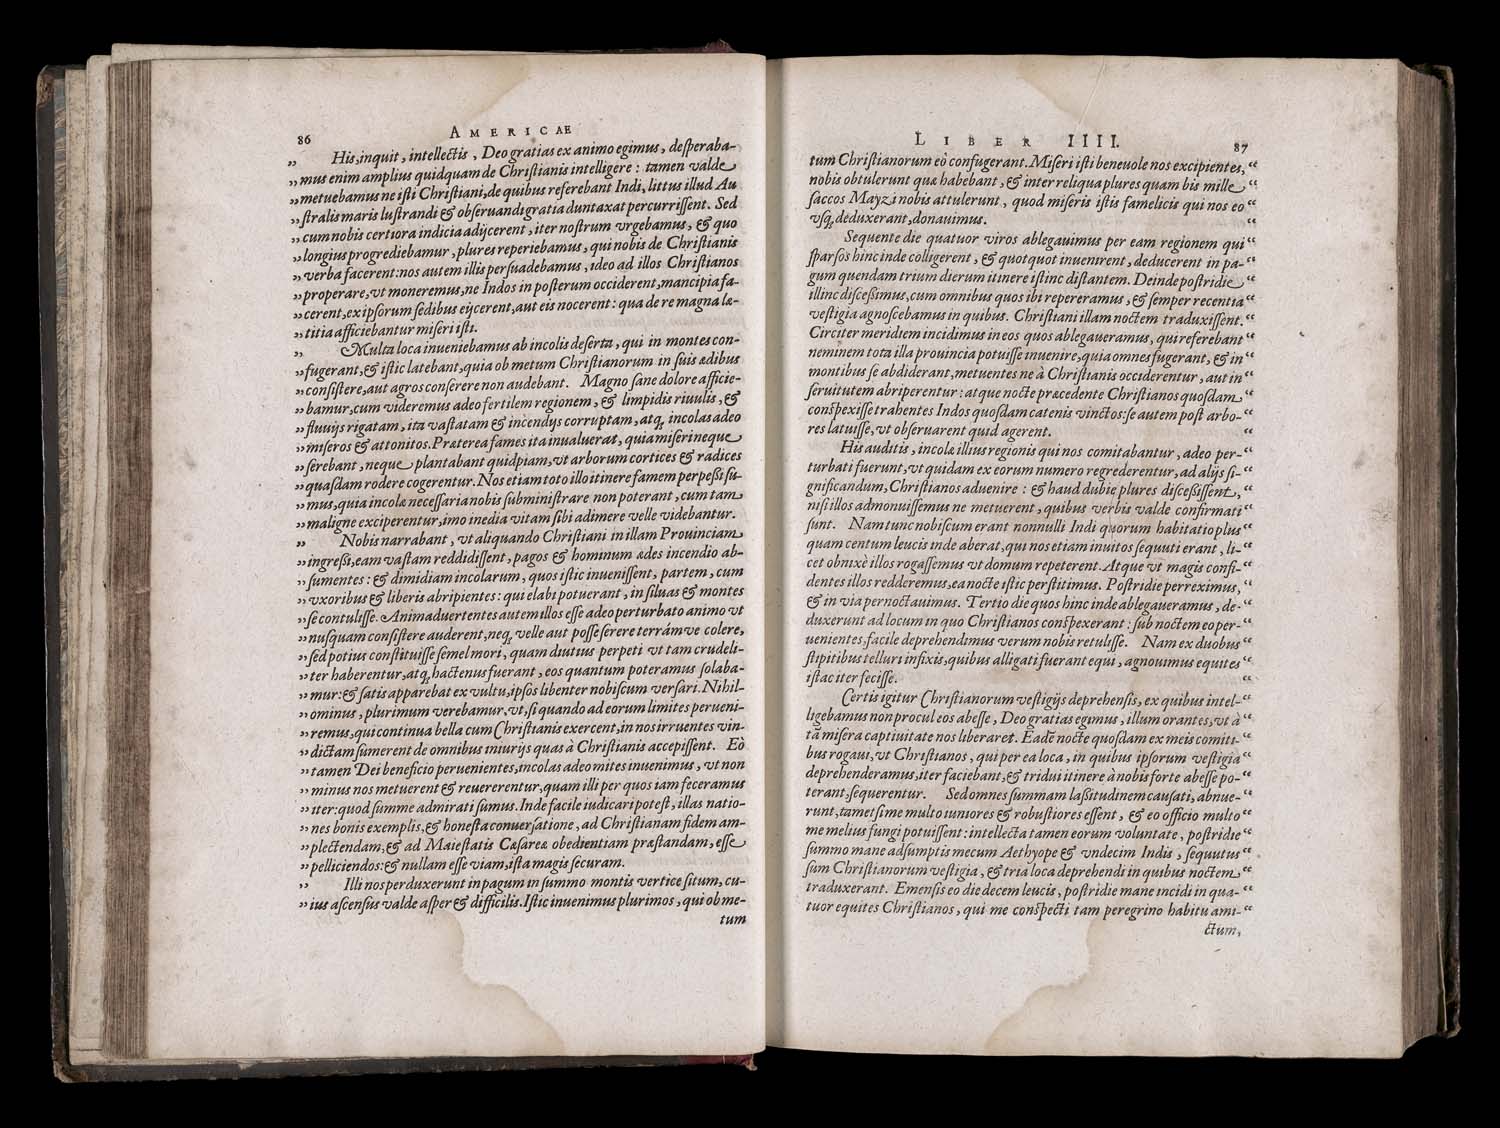 86
AMERICAE
„ His, inquit, intellectis, Deo gratias ex animo egimus, desperaba-
„ mus enim amplius quidquam de Christianis intelligere: tamen valde
„ metuebamus ne isti Christiani, de quibus referebant Indi, littus illud Au
„ stralis maris lustrandi & obseruandi gratia duntaxat percurrissent. Sed
„ cum nobis certiora indicia adijcerent, iter nostrum vrgebamus, & quo
„ longius progrediebamur, plures reperiebamus, qui nobis de Christianis
„ verba facerent: nos autem illis persuadebamus, ideo ad illos Christianos
„ properare, vt moneremus, ne Indos in posterum occiderent, mancipia fa-
„ cerent, ex ipsorum sedibus eijcerent, aut eis nocerent: qua de re magna læ-
„ titia afficiebantur miseri isti.
„ Multa loca inueniebamus ab incolis deserta, qui in montes con-
„ fugerant, & istic latebant, quia ob metum Christianorum in suis ædibus
„ consistere, aut agros conserere non audebant. Magno sane dolore afficie-
„ bamur, cum videremus adeo fertilem regionem, & limpidis riuulis, &
„ fluuijs rigatam, ita vastatam & incendijs corruptam, atq; incolas adeo
„ miseros & attonitos. Præterea fames ita inualuerat, quia miseri neque
„ serebant, neque plantabant quidpiam, vt arborum cortices & radices
„ quasdam rodere cogerentur. Nos etiam toto illo itinere famem perpessi su-
„ mus, quia incolæ necessaria nobis subministrare non poterant, cum tam
„ maligne exciperentur, imo inedia vitam sibi adimere velle videbantur.
„ Nobis narrabant, vt aliquando Christiani in illam Prouinciam
„ ingressi, eam vastam reddidissent, pagos & hominum ædes incendio ab-
„ sumentes: & dimidiam incolarum, quos istic inuenissent, partem, cum
„ vxoribus & liberis abripientes: qui elabi potuerant, in siluas & montes
„ se contulisse. Animaduertentes autem illos esse adeo perturbato animo vt
„ nusquam consistere auderent, neq; velle aut posse serere terrámve colere,
„ sed potius constituisse semel mori, quam diutius perpeti vt tam crudeli-
„ ter haberentur, atq; hactenus fuerant, eos quantum poteramus solaba-
„ mur: & satis apparebat ex vultu, ipsos libenter nobiscum versari. Nihil-
„ ominus, plurimum verebamur, vt, si quando ad eorum limites perueni-
„ remus, qui continua bella cum Christianis exercent, in nos irruentes vin-
„ dictam sumerent de omnibus iniurijs quas à Christianis accepissent. Eò
„ tamen Dei beneficio peruenientes, incolas adeo mites inuenimus, vt non
„ minus nos metuerent & reuererentur, quam illi per quos iam feceramus
„ iter: quod summe admirati sumus. Inde facile iudicari potest, illas natio-
„ nes bonis exemplis, & honesta conuersatione, ad Christianam fidem am-
„ plectendam, & ad Maiestatis Cæsareæ obedientiam præstandam, esse
„ pelliciendos: & nullam esse viam, ista magis securam.
„ Illi nos perduxerunt in pagum in summo montis vertice situm, cu-
„ ius ascensus valde asper & difficilis. Istic inuenimus plurimos, qui ob me-
tum
LIBER IIII.
87
tum Christianorum eò confugerant. Miseri isti beneuole nos excipientes, “
nobis obtulerunt quæ habebant, & inter reliqua plures quam bis mille “
saccos Mayzi nobis attulerunt, quod miseris istis famelicis qui nos eo “
vsq; deduxerant, donauimus. “
Sequente die quatuor viros ablegauimus per eam regionem qui “
sparsos hinc inde colligerent, & quotquot inuenirent, deducerent in pa- “
gum quendam trium dierum itinere istinc distantem. Deinde postridie “
illinc discessimus, cum omnibus quos ibi repereramus, & semper recentia “
vestigia agnoscebamus in quibus. Christiani illam noctem traduxissent. “
Circiter meridiem incidimus in eos quos ablegaueramus, qui referebant “
neminem tota illa prouincia potuisse inuenire, quia omnes fugerant, & in “
montibus se abdiderant, metuentes ne à Christianis occiderentur, aut in “
seruitutem abriperentur: atque nocte præcedente Christianos quosdam “
conspexisse trahentes Indos quosdam catenis vinctos: se autem post arbo- “
res latuisse, vt obseruarent quid agerent. “
His auditis, incolæ illius regionis qui nos comitabantur, adeo per- “
turbati fuerunt, vt quidam ex eorum numero regrederentur, ad alijs si- “
gnificandum, Christianos aduenire: & haud dubie plures discessissent, “
nisi illos admonuissemus ne metuerent, quibus verbis valde confirmati “
sunt. Nam tunc nobiscum erant nonnulli Indi quorum habitatio plus “
quam centum leucis inde aberat, qui nos etiam inuitos sequuti erant, li- “
cet obnixè illos rogassemus vt domum repeterent. Atque vt magis confi- “
dentes illos redderemus, ea nocte istic perstitimus. Postridie perreximus, “
& in via pernoctauimus. Tertio die quos hinc inde ablegaueramus, de- “
duxerunt ad locum in quo Christianos conspexerant: sub noctem eo per- “
uenientes, facile deprehendimus verum nobis retulisse. Nam ex duobus “
stipitibus telluri infixis, quibus alligati fuerant equi, agnouimus equites “
istac iter fecisse. “
Certis igitur Christianorum vestigijs deprehensis, ex quibus intel- “
ligebamus non procul eos abesse, Deo gratias egimus, illum orantes, vt à “
tā misera captiuitate nos liberaret. Eadē nocte quosdam ex meis comiti- “
bus rogaui, vt Christianos, qui per ea loca, in quibus ipsorum vestigia “
deprehenderamus, iter faciebant, & tridui itinere à nobis forte abesse po- “
terant, sequerentur. Sed omnes summam lassitudinem causati, abnue- “
runt, tametsi me multo iuniores & robustiores essent, & eo officio multo “
me melius fungi potuissent: intellecta tamen eorum voluntate, postridie “
summo mane adsumptis mecum Aethyope & vndecim Indis, sequutus “
sum Christianorum vestigia, & tria loca deprehendi in quibus noctem “
traduxerant. Emensis eo die decem leucis, postridie mane incidi in qua- “
tuor equites Christianos, qui me conspecti tam peregrino habitu ami- “
ctum,